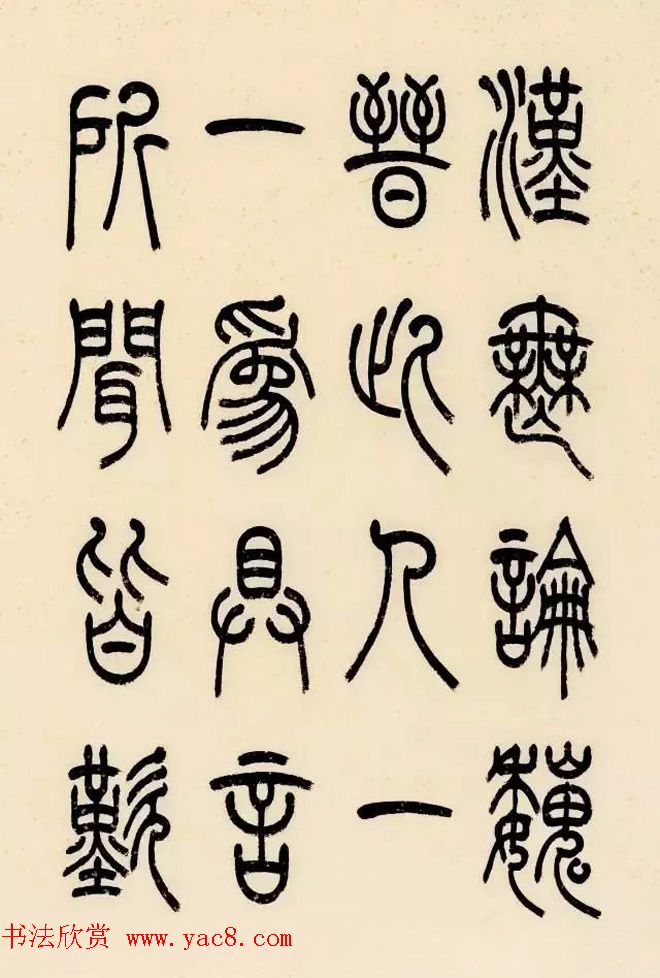 漢無論魏
晉此人一
一爲具言
所聞皆歎
书法欣赏 www.yac8.com